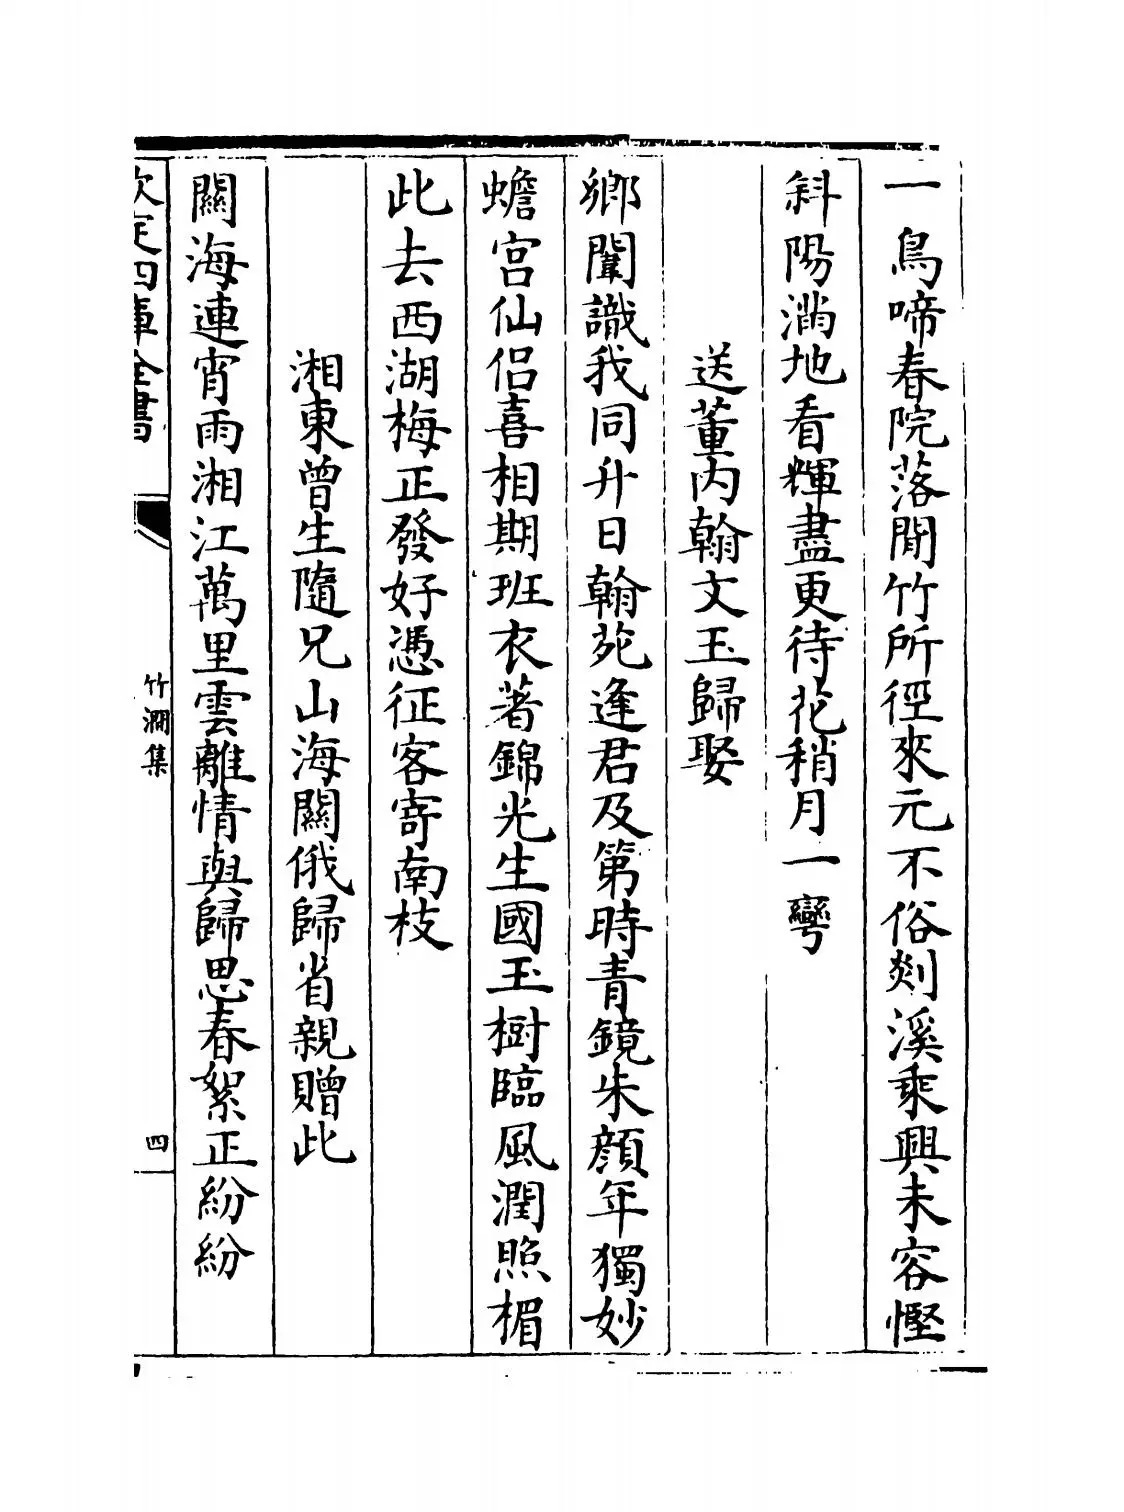 一鳥啼春院落閒竹所徑來元不俗剡溪乘興未容慳
斜陽滿地看輝盡更待花稍月一彎
送董内翰文玉歸娶
鄉闈識我同升日翰苑逢君及第時青鏡朱顔年獨妙
蟾宮仙侣喜相期班衣著錦光生國玉樹臨風潤照楣
此去西湖梅正發好憑征客寄南枝
湘東曾生隨兄山海關俄歸省親贈此
關海連宵雨湘江萬里雲離情與歸思春絮正紛紛
欽定四庫全書
竹澗集
四